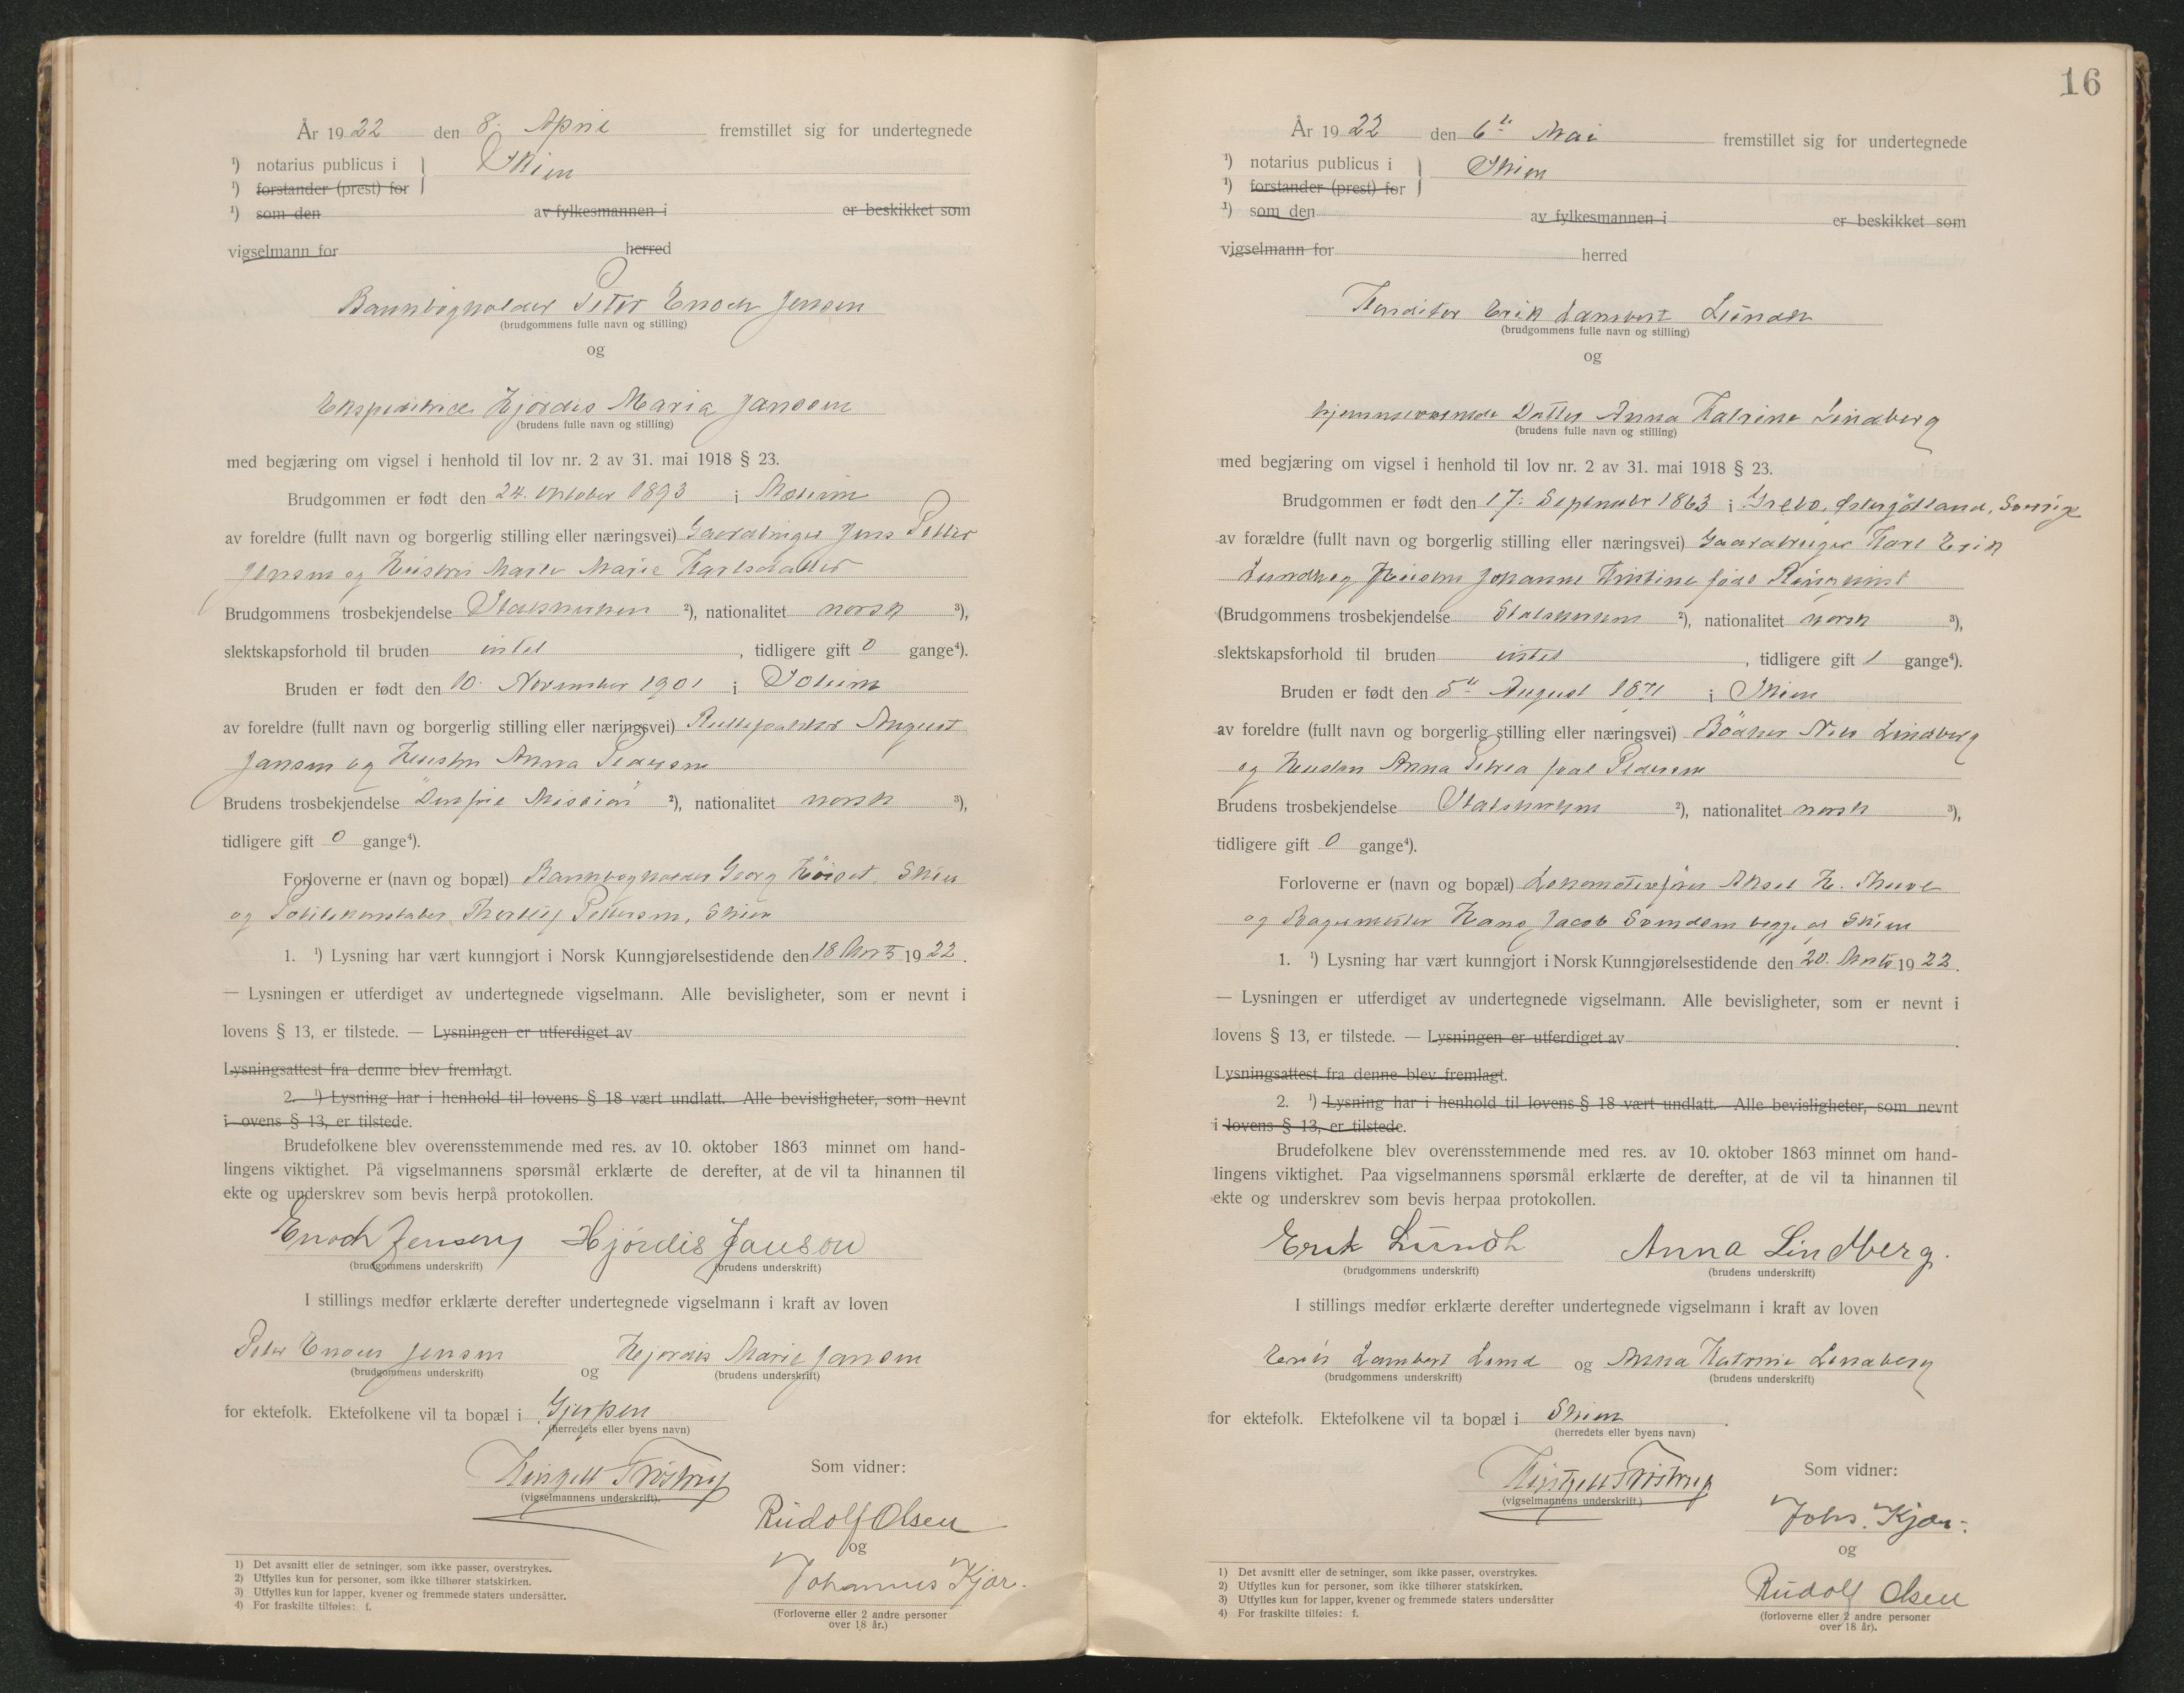 År 1922 den 8. April fremstillet sig for undertegnede
¹) notarius publicus i Skien
¹) forstander (prest) for
¹) som den av fylkesmannen i er beskikket som
vigselmann for herred
Peter Enoch Jensen
(brudgommens fulle navn og stilling)
og
Ekspeditrice Hjørdis Maria Janson
(brudens fulle navn og stilling)
med begjæring om vigsel i henhold til lov nr. 2 av 31. mai 1918 § 23.
Brudgommen er født den 24. Oktober 1893 i
av foreldre (fullt navn og borgerlig stilling eller næringsvei) Gaardbruger Jens Petter
Jensen og Hustru Maren Marie Karlsdatter
Brudgommens trosbekjendelse Statskirken ²), nationalitet norsk ³),
slektskapsforhold til bruden intet , tidligere gift 0 gange⁴).
Bruden er født den 10. November 1901 i Solum
av foreldre (fullt navn og borgerlig stilling eller næringsvei) August
Janson og Hustru Anna Pedersen
Brudens trosbekjendelse "Den frie Mission" ²), nationalitet norsk ³),
tidligere gift 0 gange⁴).
Forloverne er (navn og bopæl) Georg Høiset, Skien
og Politikonstabel Thorleif Pettersen, Skien
1. ¹) Lysning har vært kunngjort i Norsk Kunngjørelsestidende den 18 Marts 1922.
— Lysningen er utferdiget av undertegnede vigselmann. Alle bevisligheter, som er nevnt i
lovens § 13, er tilstede. — Lysningen er utferdiget av
Lysningsattest fra denne blev fremlagt.
2. ¹) Lysning har i henhold til lovens § 18 vært undlatt. Alle bevisligheter, som nevnt
i ovens § 13, er tilstede.
Brudefolkene blev overensstemmende med res. av 10. oktober 1863 minnet om hand-
lingens viktighet. På vigselmannens spørsmål erklærte de derefter, at de vil ta hinannen til
ekte og underskrev som bevis herpå protokollen.
Enoch Jensen Hjørdis Janson
(brudgommens underskrift) (brudens underskrift)
I stillings medfør erklærte derefter undertegnede vigselmann i kraft av loven
Peter Enoch Jensen og Hjørdis Marie Janson
(brudgommens underskrift) (brudens underskrift)
for ektefolk. Ektefolkene vil ta bopæl i Gjerpen
(herredets eller byens navn)
Som vidner:
(vigselmannens underskrift).
Rudolf Olsen
og
Johannes Kjær.
(Forloverne eller 2 andre personer
over 18 år.)
1) Det avsnitt eller de setninger, som ikke passer, overstrykes.
2) Utfylles kun for personer, som ikke tilhører statskirken.
3) Utfylles kun for lapper, kvener og fremmede staters undersåtter.
4) For fraskilte tilføies: f.
16
År 1922 den 6te Mai fremstillet sig for undertegnede
¹) notarius publicus i Skien
¹) forstander (prest) for
¹) som den av fylkesmannen i er beskikket som
vigselmann for herred
Konditor Erik Lambert Lundh
(brudgommens fulle navn og stilling)
og
hjemmeværende Datter Anna Katrine Lindberg
(brudens fulle navn og stilling)
med begjæring om vigsel i henhold til lov nr. 2 av 31. mai 1918 § 23.
Brudgommen er født den 17. September 1863 i Grebo, Østergötland, Sverige
av forældre (fullt navn og borgerlig stilling eller næringsvei) Gaardbruger Karl Erik
Lundh og Hustru Johanne Kristine født
(Brudgommens trosbekjendelse Statskirken ²), nationalitet norsk ³),
slektskapsforhold til bruden intet , tidligere gift 1 gange⁴).
Bruden er født den 5te August 1871 i Skien
av foreldre (fullt navn og borgerlig stilling eller næringsvei) Bödker Nils Lindberg
og Hustru Anna Petrea født Pedersen
Brudens trosbekjendelse Statskirken ²), nationalitet norsk ³),
tidligere gift 0 gange⁴).
Forloverne er (navn og bopæl) Lokomotivfører Aksel H.
og Bagermester Hans Jacob Svendsen begge af Skien
1. ¹) Lysning har vært kunngjort i Norsk Kunngjørelsestidende den 20. Marts 1922.
— Lysningen er utferdiget av undertegnede vigselmann. Alle bevisligheter, som er nevnt i
lovens § 13, er tilstede. — Lysningen er utferdiget av .
Lysningsattest fra denne blev fremlagt.
2. ¹) Lysning har i henhold til lovens § 18 vært undlatt. Alle bevisligheter, som nevnt
i lovens § 13, er tilstede.
Brudefolkene blev overensstemmende med res. av 10. oktober 1863 minnet om hand-
lingens viktighet. Paa vigselmannens spørsmål erklærte de derefter, at de vil ta hinannen til
ekte og underskrev som bevis herpaa protokollen.
Erik Lundh Anna Lindberg.
(brudgommens underskrift) (brudens underskrift)
I stillings medfør erklærte derefter undertegnede vigselmann i kraft av loven
Erik Lambert Lund og Anna Katrine Lindberg
(brudgommens underskrift) (brudens underskrift)
for ektefolk. Ektefolkene vil ta bopæl i Skien.
(herredets eller byens navn)
Som vidner:
(vigselmannens underskrift.)
Johs. Kjær.
og
Rudolf Olsen
(forloverne eller 2 andre personer
over 18 år).
1) Det avsnitt eller de setninger, som ikke passer, overstrykes.
2) Utfylles kun for personer, som ikke tilhører statskirken.
3) Utfylles kun for lapper, kvener og fremmede staters undersåtter
4) For fraskilte tilføies: f.